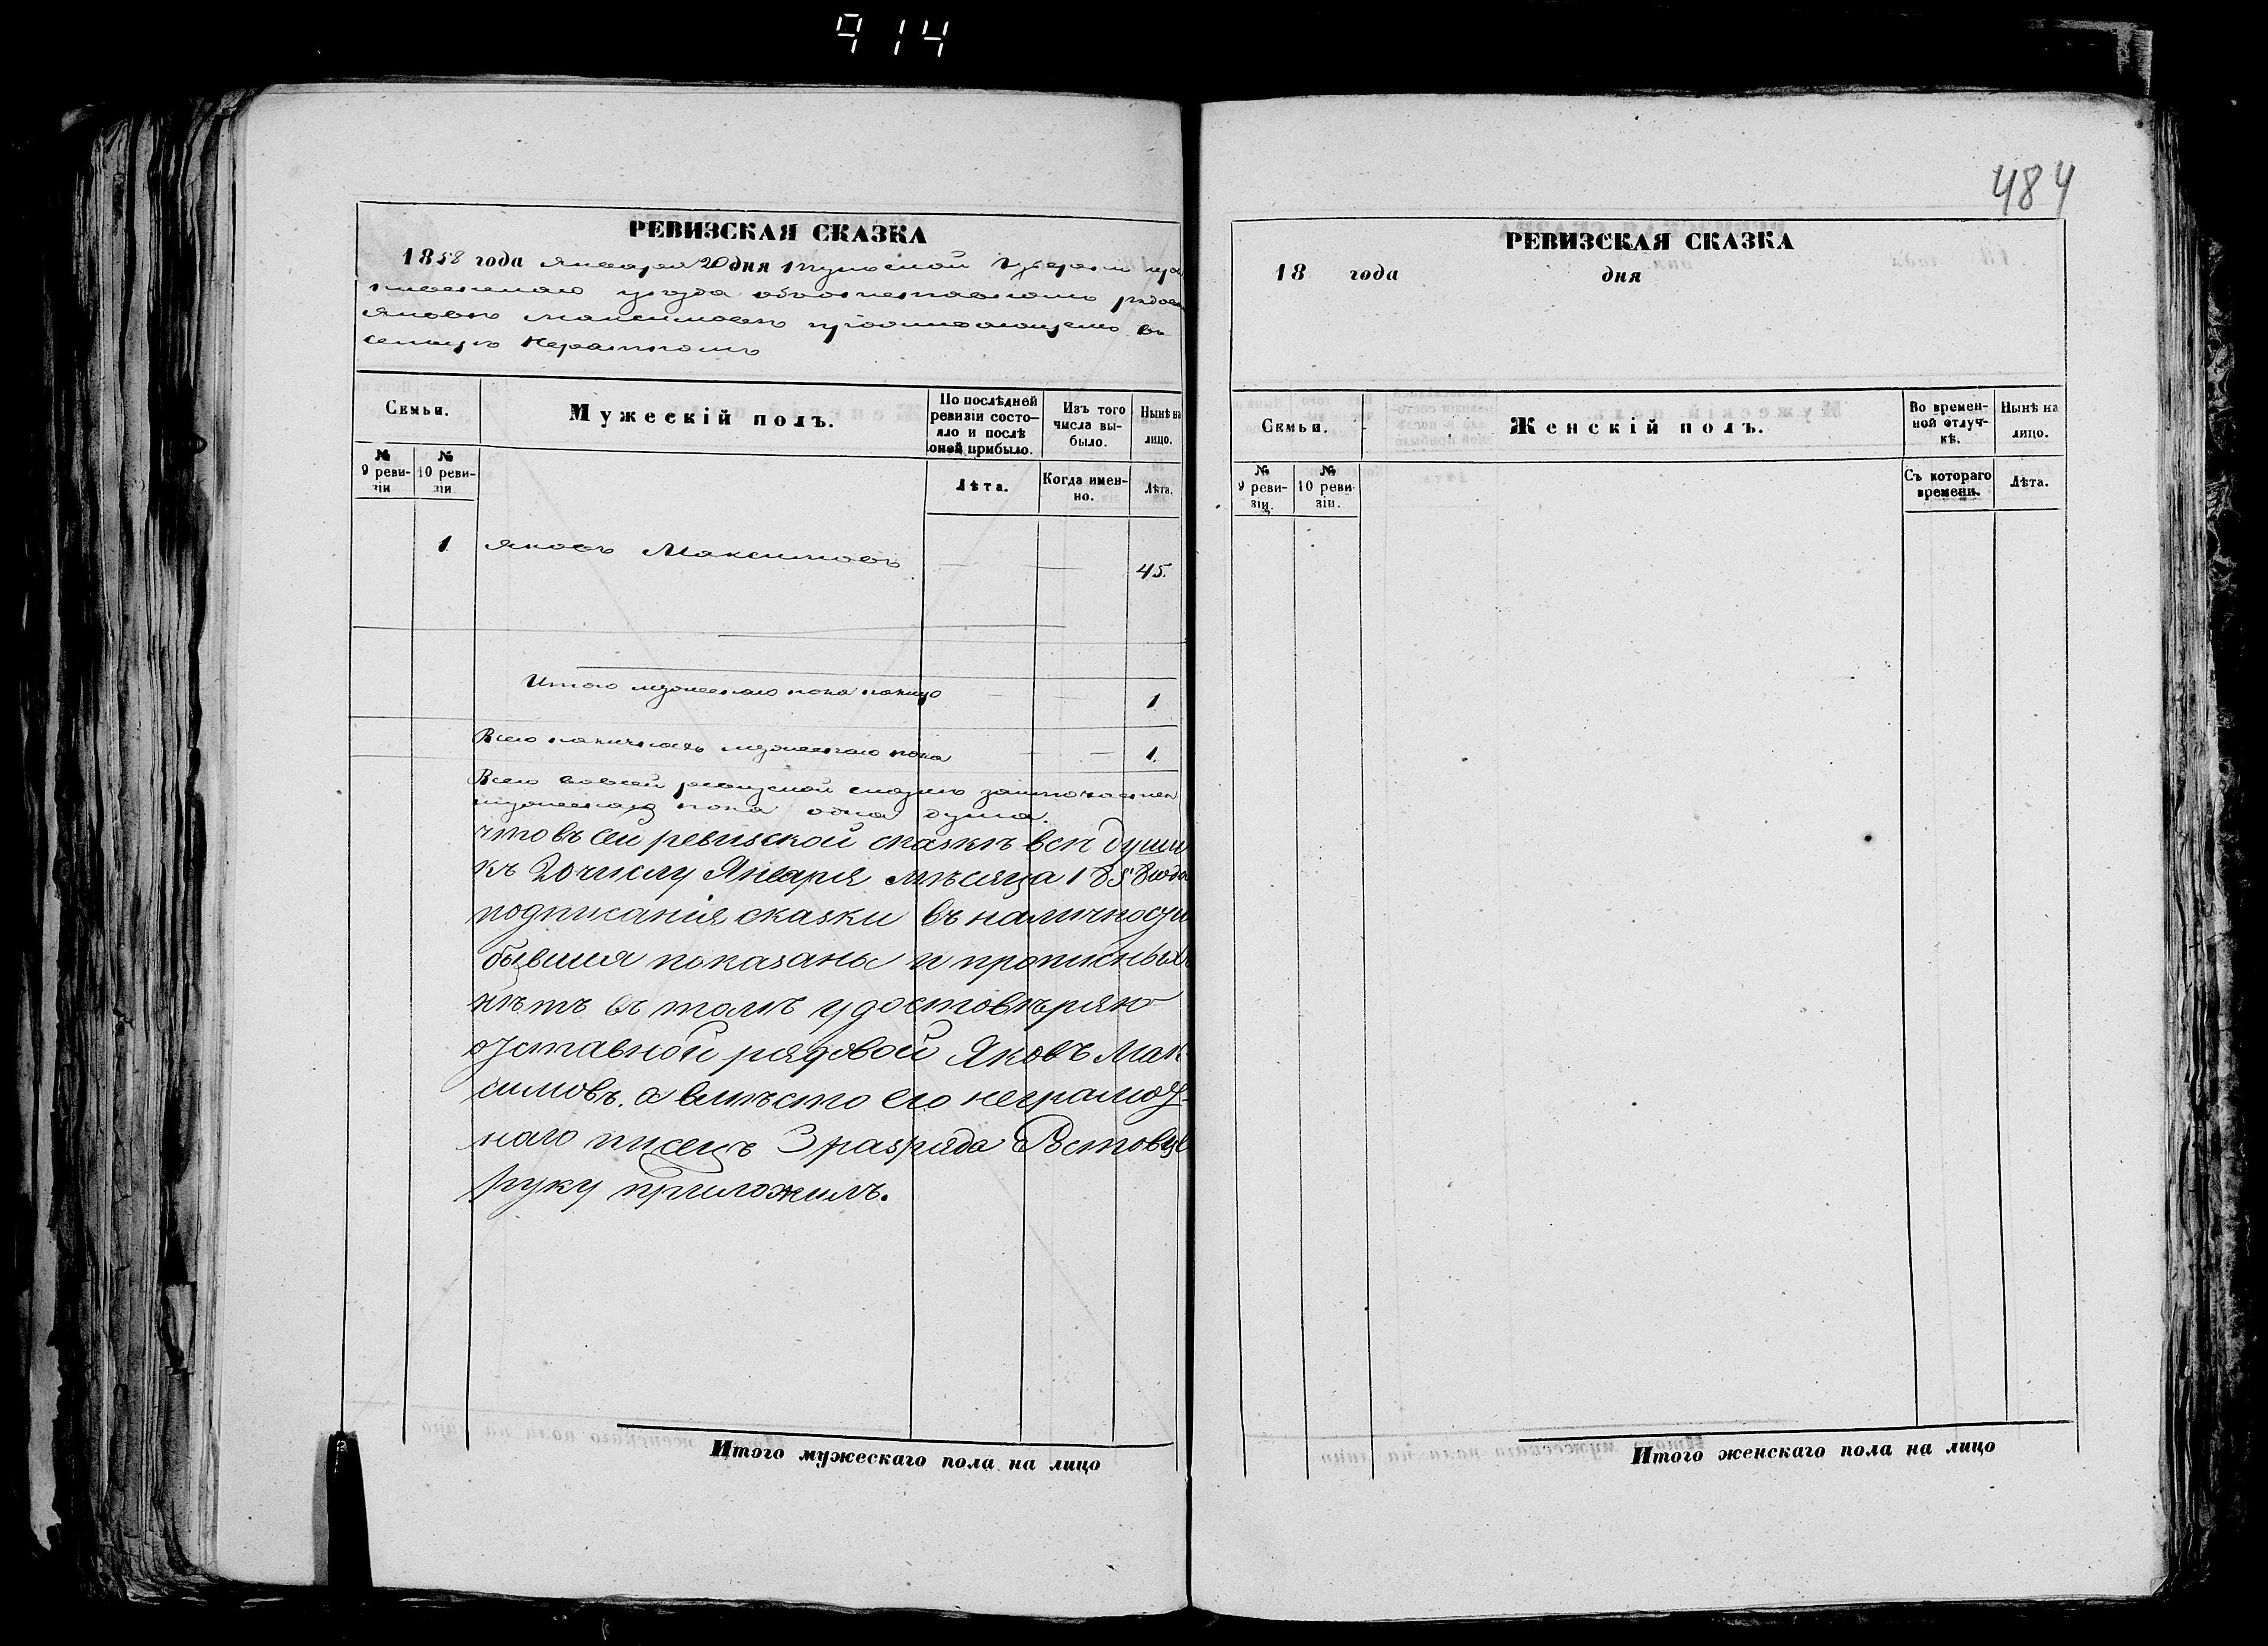 914
РЕВИЗСКАЯ СКАЗКА
1858 года Января 20 дня Тульской Губернии
уезда объ отставномъ рядов
Яковѣ Максимовѣ проживающемъ въ
сельцѣ
Семьи.
Мужескій полъ.
По послѣдней ревизіи состояло и послѣ оной прибыло.
Изъ того числа выбыло.
Нынѣ на лицо.
№ 9 ревизіи
№ 10 ревизіи
Лѣта.
Когда именно.
Лѣта.
1 Яковъ Максимовъ — — 45.
Итого мужескаго пола налицо — — 1
Всего наличныхъ мужескаго пола — — 1.
Всего въ сей ревизской сказкѣ
мужескаго пола одна душа.
что въ сей ревизской сказкѣ всѣ души
къ 20 числу Января мѣсяца 1858 года
подписанія сказки въ наличности
бывшия показаны и прописныхъ
нѣтъ въ томъ удостовѣряю
отставной рядовой Яковъ Мак
симовъ. а вмѣсто его неграмот-
наго писецъ 3 разряда
руку приложилъ.
Итого мужескаго пола на лицо
484
РЕВИЗСКАЯ СКАЗКА
18 года дня
Семьи.
Женскій полъ.
Во временной отлучкѣ.
Нынѣ на лицо.
№ 9 ревизіи.
№ 10 ревизіи.
Съ котораго времени.
Лѣта.
Итого женскаго пола на лицо